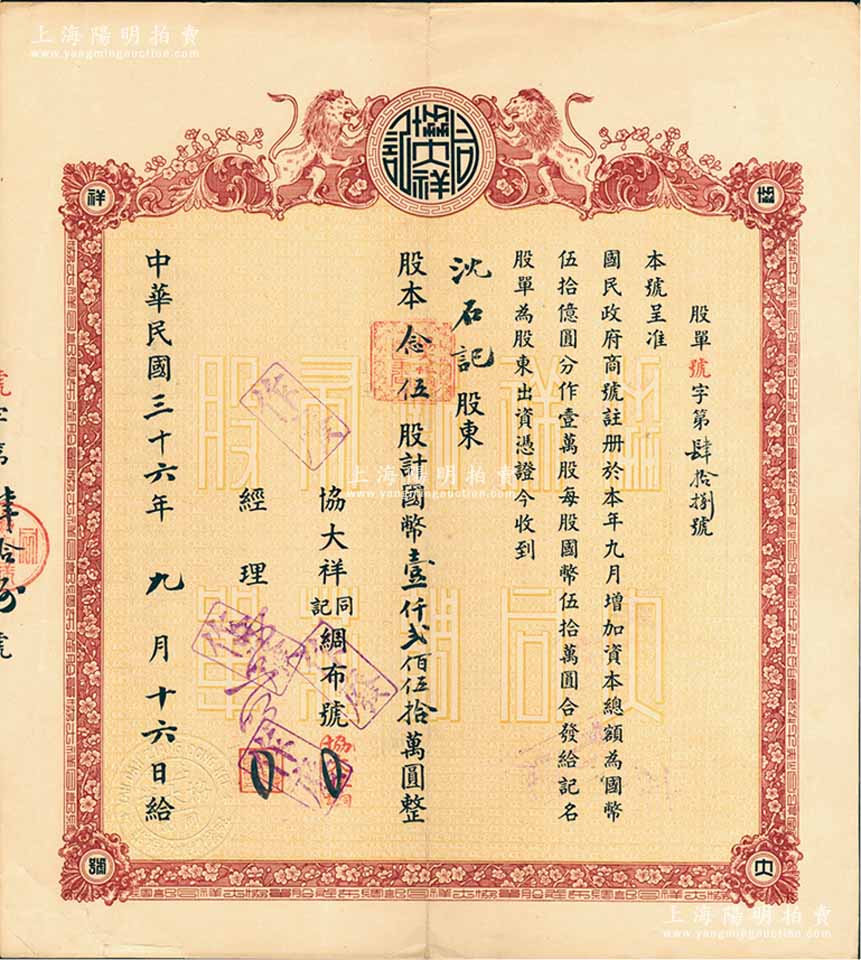 上海陽明拍賣
www.yangmingauction.com
協大祥
同記
協
祥
股單號字第肆拾捌號
本號呈准
國民政府商號註册於本年九月增加資本總額為國幣
伍拾億圓分作壹萬股每股國幣伍拾萬圓合發給記名
股單為股東出資憑證今收到
沈石記股東
股本念伍股計國幣壹仟弍佰伍拾萬圓整
協大祥同記綢布號
經理
中華民國三十六年九月十六日給
號字第肆拾捌號
上海陽明拍賣
www.yangmingauction.com
大
號
上海陽明拍賣
www.yangmingauction.com